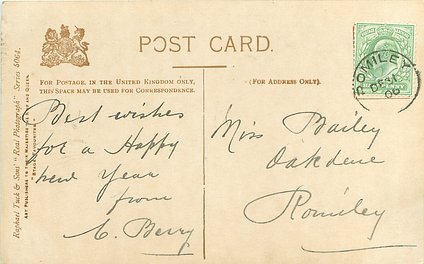 POST CARD.
FOR POSTAGE, IN THE UNITED KINGDOM ONLY,
THIS SPACE MAY BE USED FOR CORRESPONDENCE.
(FOR ADDRESS ONLY).
Best wishes
for a Happy
new Year
from
C. Berry
Miss Bailey
Oakdene
Romiley
ROMILEY
Raphael Tuck & Sons' "Real Photograph" Series 5064.
ART PUBLISHERS TO THEIR MAJESTIES THE KING AND QUEEN.